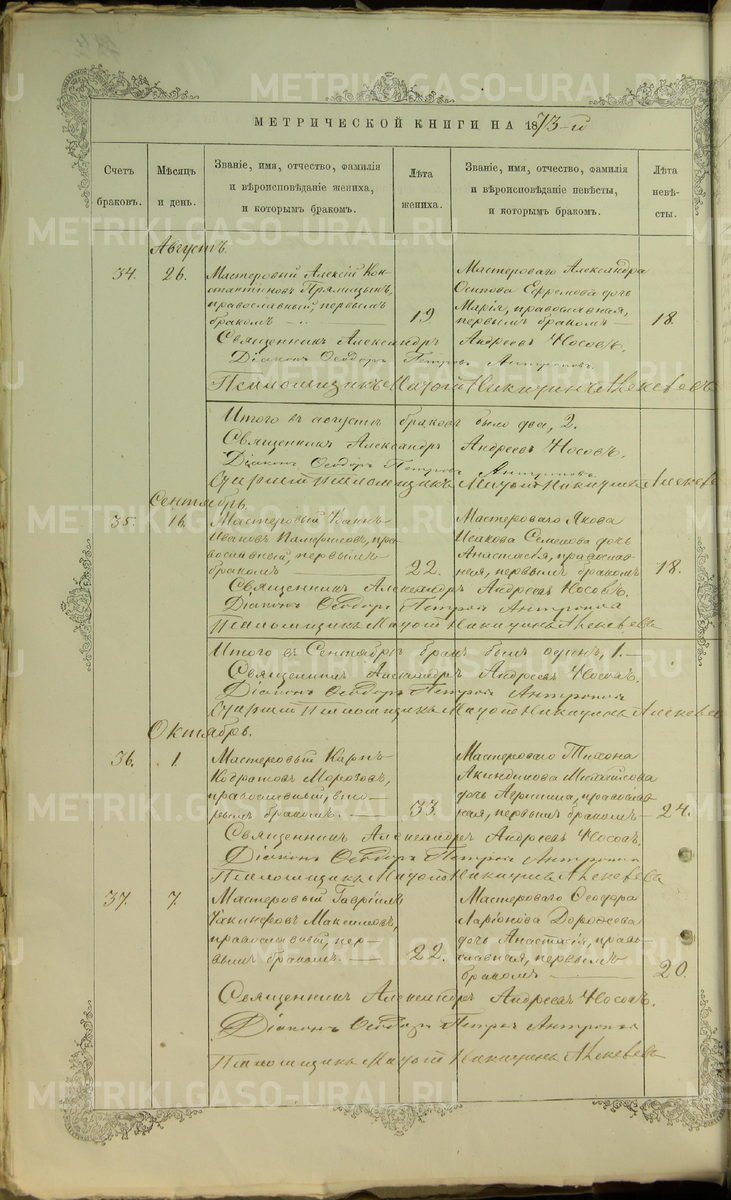 МЕТРИЧЕСКОЙ КНИГИ НА 1873-й
Счетъ браковъ.
Мѣсяцъ и день.
Званіе, имя, отчество, фамилія
и вѣроисповѣданіе жениха,
и которымъ бракомъ.
Лѣта жениха.
Званіе, имя, отчество, фамилія
и вѣроисповѣданіе невѣсты,
и которымъ бракомъ.
Лѣта невѣ-
сты.
Августъ.
34.
26.
Мастеровый Алексій Кон-
стантиновъ Прямицынъ,
православный, первымъ
бракомъ
19
Мастероваго Александра
Осипова Ефремова дочь
Марія, православная,
первымъ бракомъ
18.
Священникъ Александръ Андреевъ Носовъ.
Діаконъ Ѳеодоръ Петровъ Антроповъ.
Псаломщикъ Никулинъ
Итого въ августѣ браковъ было два, 2.
Священникъ Александръ Андреевъ Носовъ.
Діаконъ Ѳеодоръ Петровъ Антроповъ.
Псаломщикъ Никулинъ
Сентябрь.
35.
16.
Мастеровый
Ивановъ пра-
вославный, первымъ
бракомъ
22.
Мастероваго Якова
Исакова Семенова дочь
Анастасія, православ-
ная, первымъ бракомъ
18.
Священникъ Александръ Андреевъ Носовъ.
Діаконъ Ѳеодоръ Петровъ Антроповъ
Псаломщикъ Никулинъ
Итого въ Сентябрѣ бракъ былъ одинъ, 1.
Священникъ Александръ Андреевъ Носовъ.
Діаконъ Ѳеодоръ Петровъ Антроповъ
Псаломщикъ Никулинъ
Октябрь.
36.
1.
Мастеровый Карпъ
Кодратовъ Морозовъ,
православный, вто-
рымъ бракомъ.
33.
Мастероваго Тихона
Акиндинова Михайлова
дочь Агрипина, православ-
ная, первымъ бракомъ
24.
Священникъ Александръ Андреевъ Носовъ.
Діаконъ Ѳеодоръ Петровъ Антроповъ
Псаломщикъ Никулинъ
37.
7.
Мастеровый Гавріилъ
Іакинфовъ Максимовъ,
православный, пер-
вымъ бракомъ.
22.
Мастероваго Ѳеодора
Ларіонова Дорофеева
дочь Анастасія, право-
славная, первымъ
бракомъ
20.
Священникъ Александръ Андреевъ Носовъ.
Діаконъ Ѳеодоръ Петровъ Антроповъ
Псаломщикъ Никулинъ
METRIKI.GASO-URAL.RU
METRIKI.GASO-URAL.RU
METRIKI.GASO-URAL.RU
METRIKI.GASO-URAL.RU
METRIKI.GASO-URAL.RU
METRIKI.GASO-URAL.RU
METRIKI.GASO-URAL.RU
METRIKI.GASO-URAL.RU